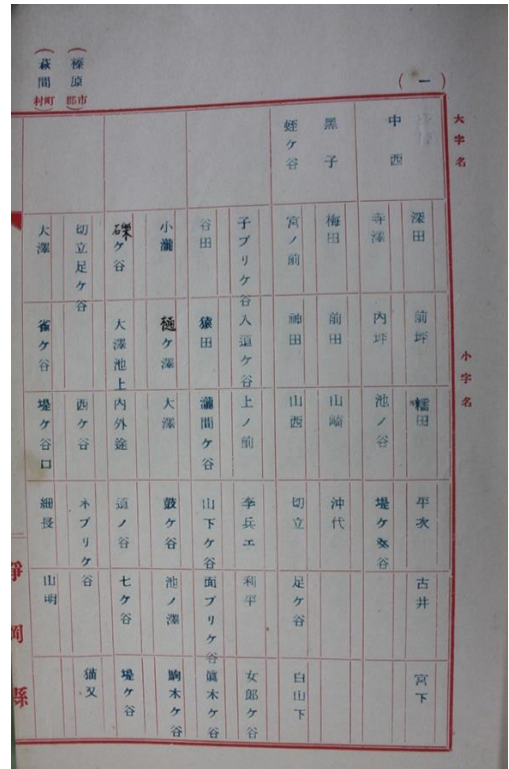 (一)
大字名
小字名
榛原 市郡
萩間 町村
中西
深田 前坪 糯田 平次 古井 宮下
寺澤 内坪 池ノ谷 堤ケ谷
黑子
梅田 前田 山崎 沖代
蛭ケ谷
宮ノ前 神田 山西 切立 足ケ谷 白山下
子ブリケ谷 入道ケ谷 上ノ前 李兵エ 利平 女郎ケ谷
谷田 猿田 瀧間ケ谷 山下ケ谷 面ブリケ谷 眞木ケ谷
小瀧 樋ケ澤 大澤 鼓ケ谷 池ノ澤 駒木ケ谷
礫ケ谷 大澤池上 内外途 道ノ谷 七ケ谷 堤ケ谷
切立足ケ谷 西ケ谷 ネブリケ谷 猫又
大澤 雀ケ谷 堤ケ谷口 細長 山明
靜岡縣